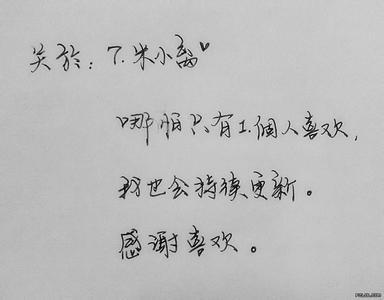 关於：7.朱小离♥
哪怕只有1.個人喜欢，
我也会持续更新。
感谢喜欢。